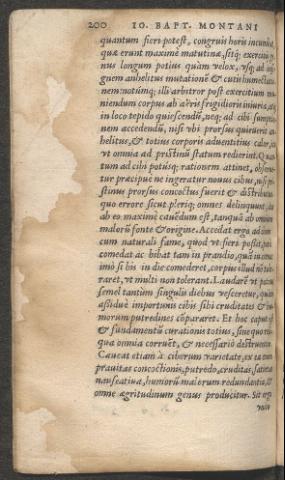 200 IO. BAPT. MONTANI
quantum fieri potest, congruis horis incumbat,
quæ erunt maximè matutinæ, sitq́; exercitij ge
nus longum potius quàm velox, vsq́; ad
gnem anhelitus mutationẽ & cutis humectatio
nem notiúmq́; illi arbitror post exercitium mu
niendum corpus ab aëris frigidioris iniuria,
in loco tepido quiescendũ, neq́; ad cibi sumptio
nem accedendũ, nisi vbi prorsus quieuerit an
helitus, & totius corporis aduentitius calor,
vt omnia ad pristinũ statum redierint. Quan
tum ad cibi potúsq́; rationem attinet, obserue
tur præcipuè ne ingeratur nouus cibus, nisi pri
stinus prorsus concoctus fuerit & distributus
quo errore sicut plæriq́; omnes delinquunt,
ab eo maximè cauẽdum est, tanquã ab omnium
malorũ fonte & origine. Accedat ergo ad
cum naturali fame, quod vt fieri possit,
comedat ac bibat tam in prandio, quã in cœna
imò si bis in die comederet, corpus illud nõ tole
raret, vt multi non tolerant. Laudarẽ vt potius
semel tantùm singulis diebus vesceretur, quàm
assiduè importunis cibis sibi cruditates & hu
morum putredines cõpararet. Et hoc caput est
& fundamentũ curationis totius, sine quo reli
qua omnia corruẽt, & necessariò destruentur.
Caueat etiam à ciborum varietate, ex ea enim
prauitas concoctionis, putredo, cruditas, satietas
nauseatiua, humorũ malorum redundantia, &
omne ægritudinum genus producitur. Sit ergo